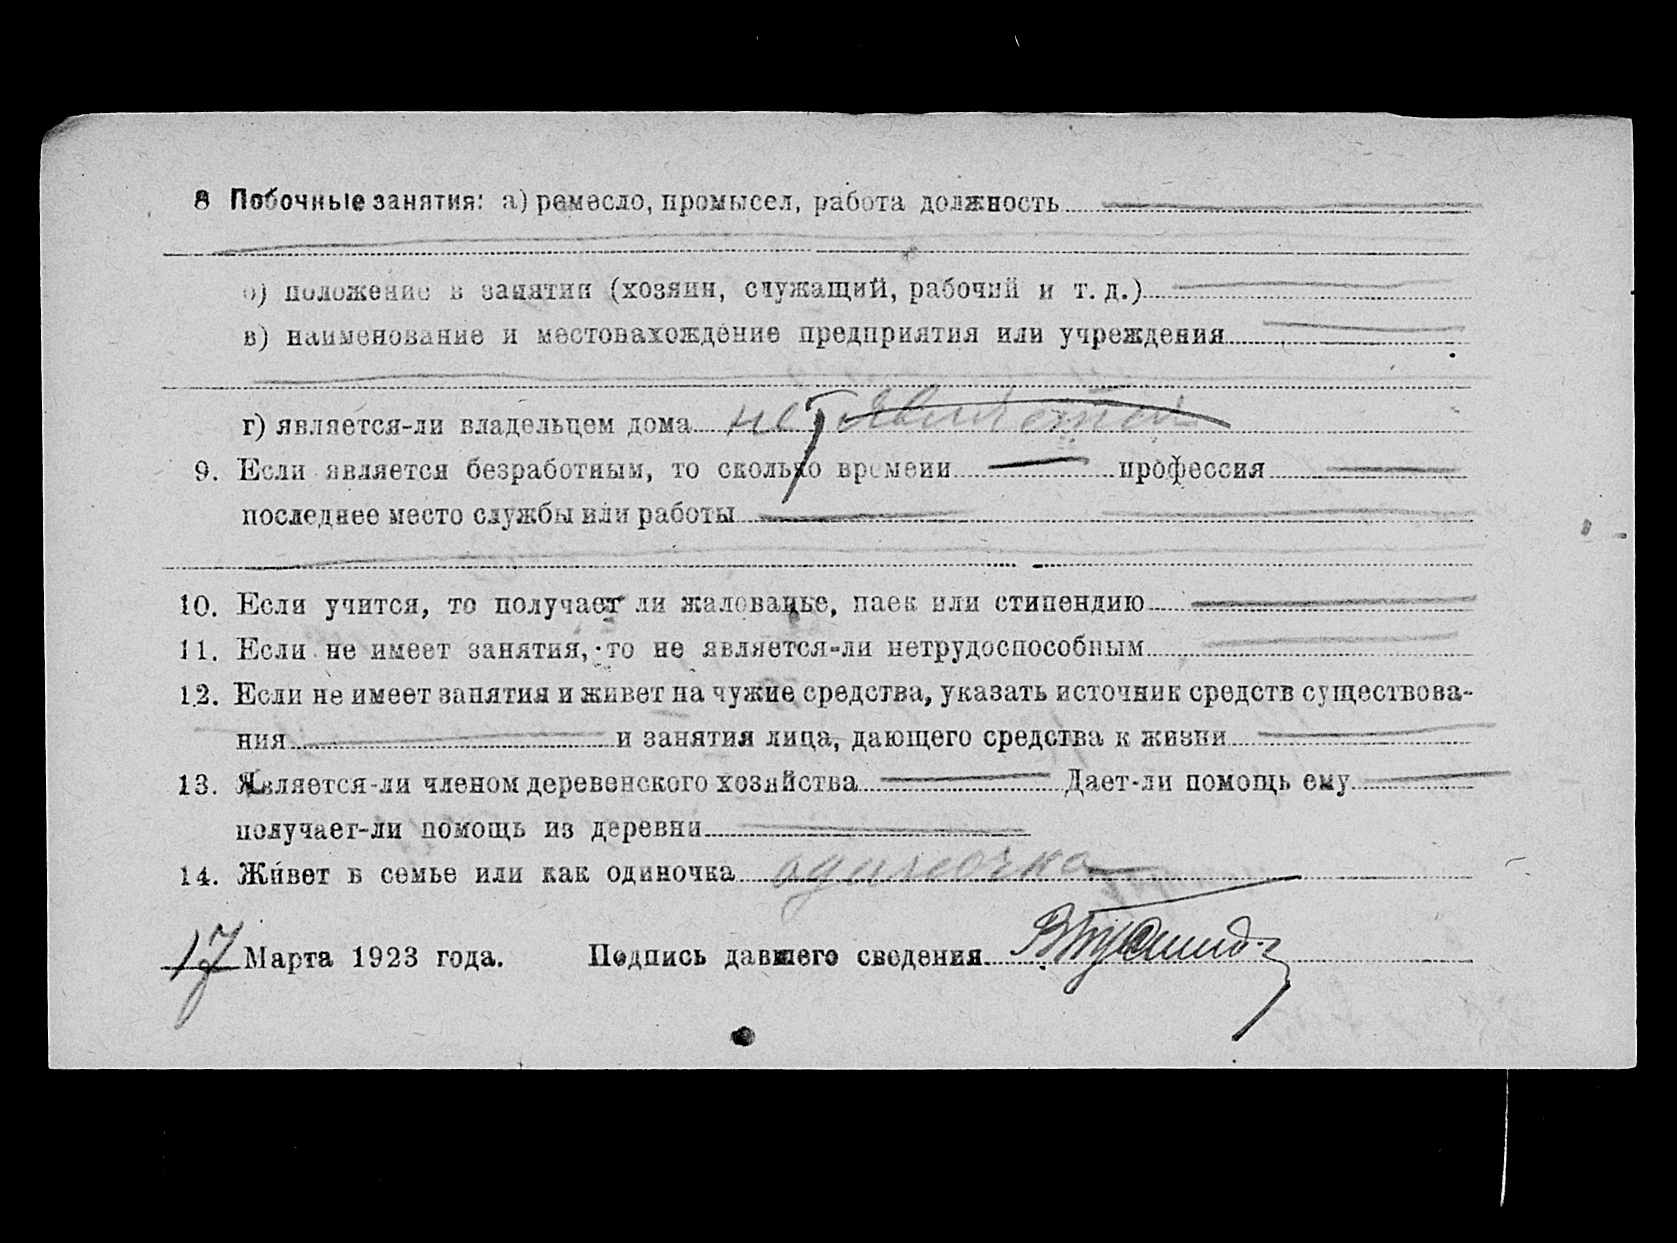 8 Побочные занятия: а) ремесло, промысел, работа должность
б) положение в занятии (хозяин, служащий, рабочий и т. д.)
в) наименование и местонахождение предприятия или учреждения
г) является-ли владельцем дома не является
9. Если является безработным, то сколько времени профессия
последнее место службы или работы
10. Если учится, то получает ли жалованье, паек или стипендию
11. Если не имеет занятия, то не является-ли нетрудоспособным
12. Если не имеет занятия и живет на чужие средства, указать источник средств существова-
ния и занятия лица, дающего средства к жизни
13. Является-ли членом деревенского хозяйства Дает-ли помощь ему
получает-ли помощь из деревни
14. Живет в семье или как одиночка одиночка
17 Марта 1923 года. Подпись давшего сведения